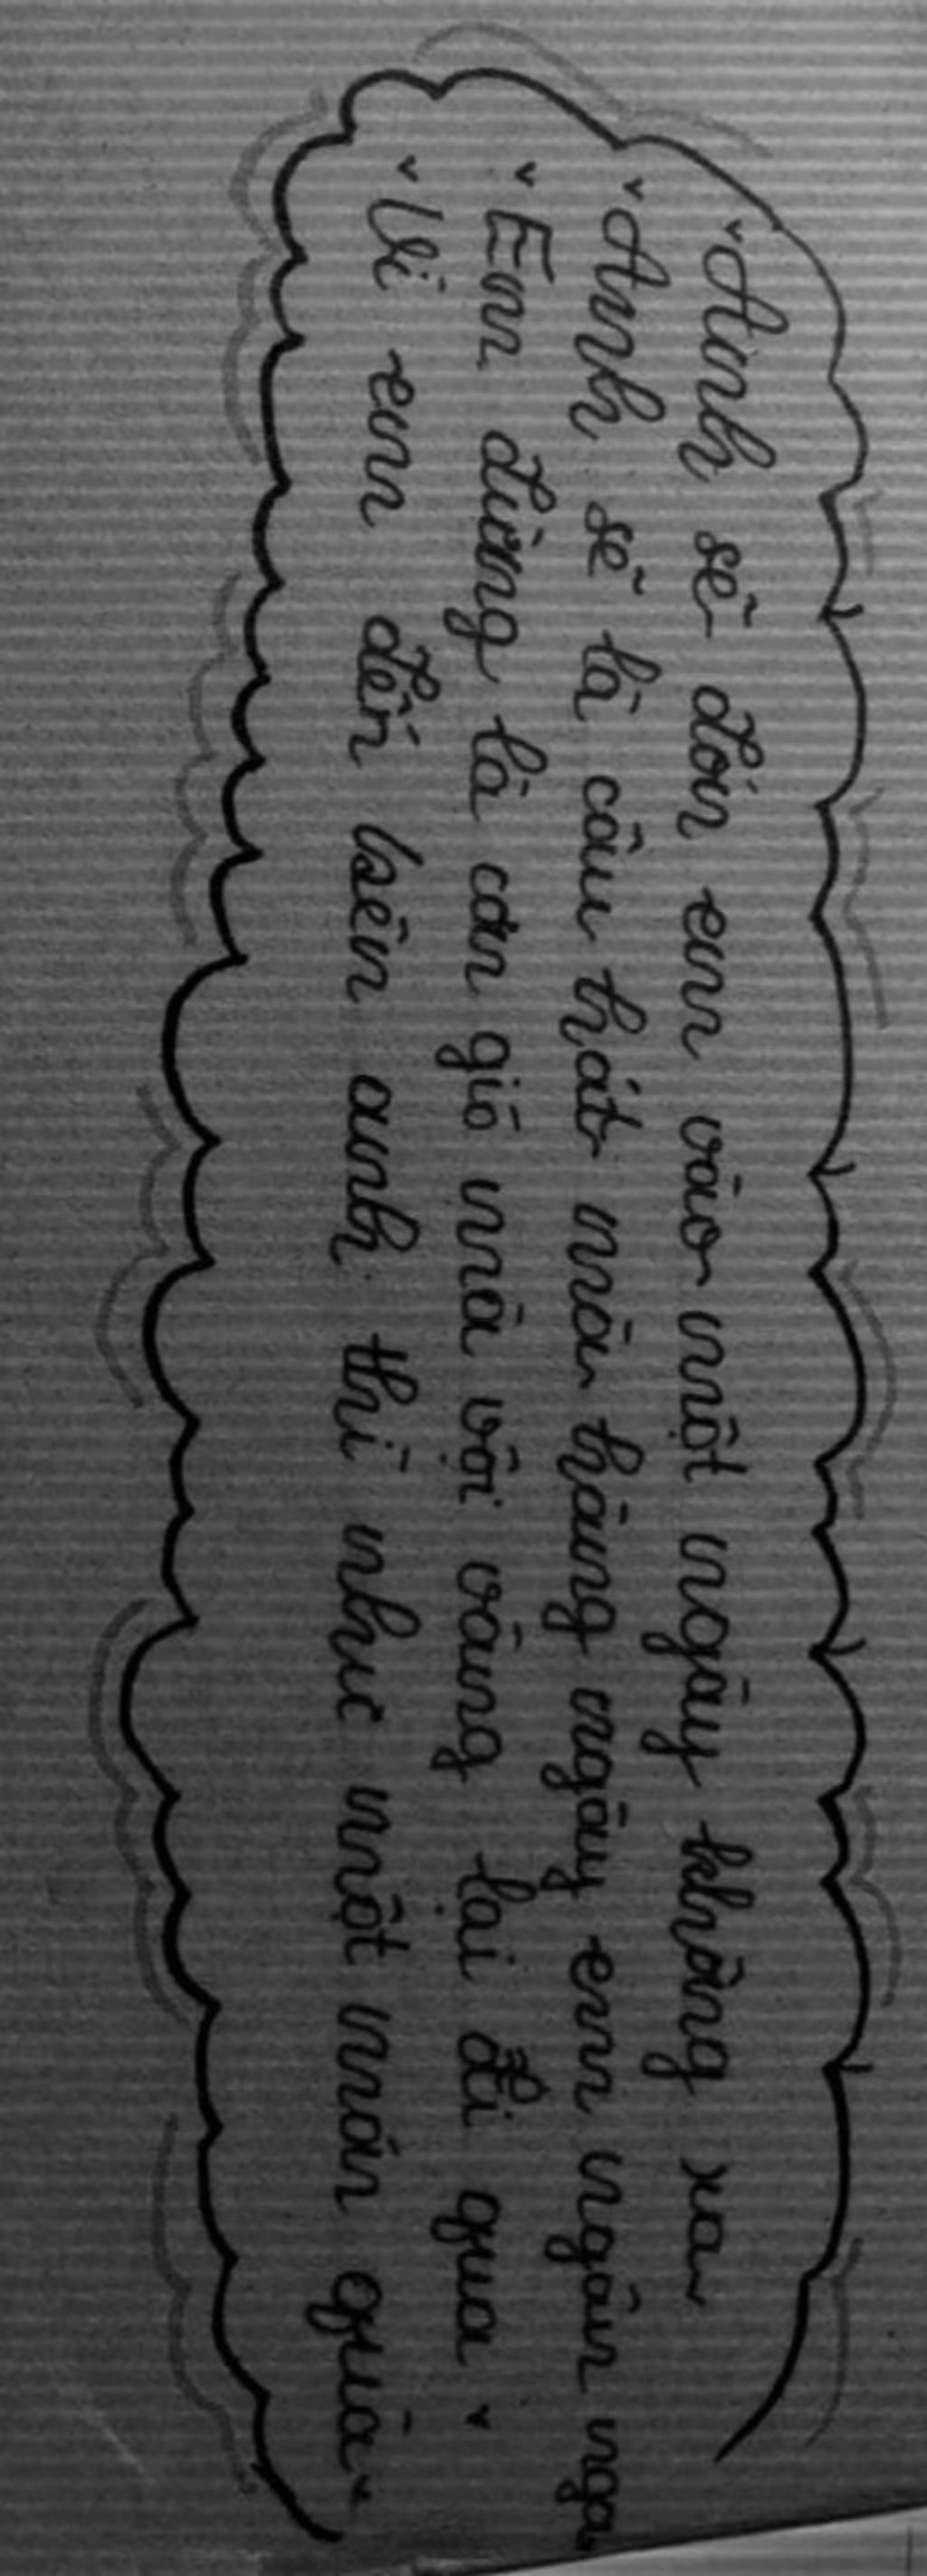 "Anh sẽ đón em vào một ngày không xa
"Anh sẽ là câu hát mà hàng ngày em ngân nga
"Em đừng là cơn gió mà vội vàng lại đi qua "
"Vì em đến bên anh thì như một món quà"